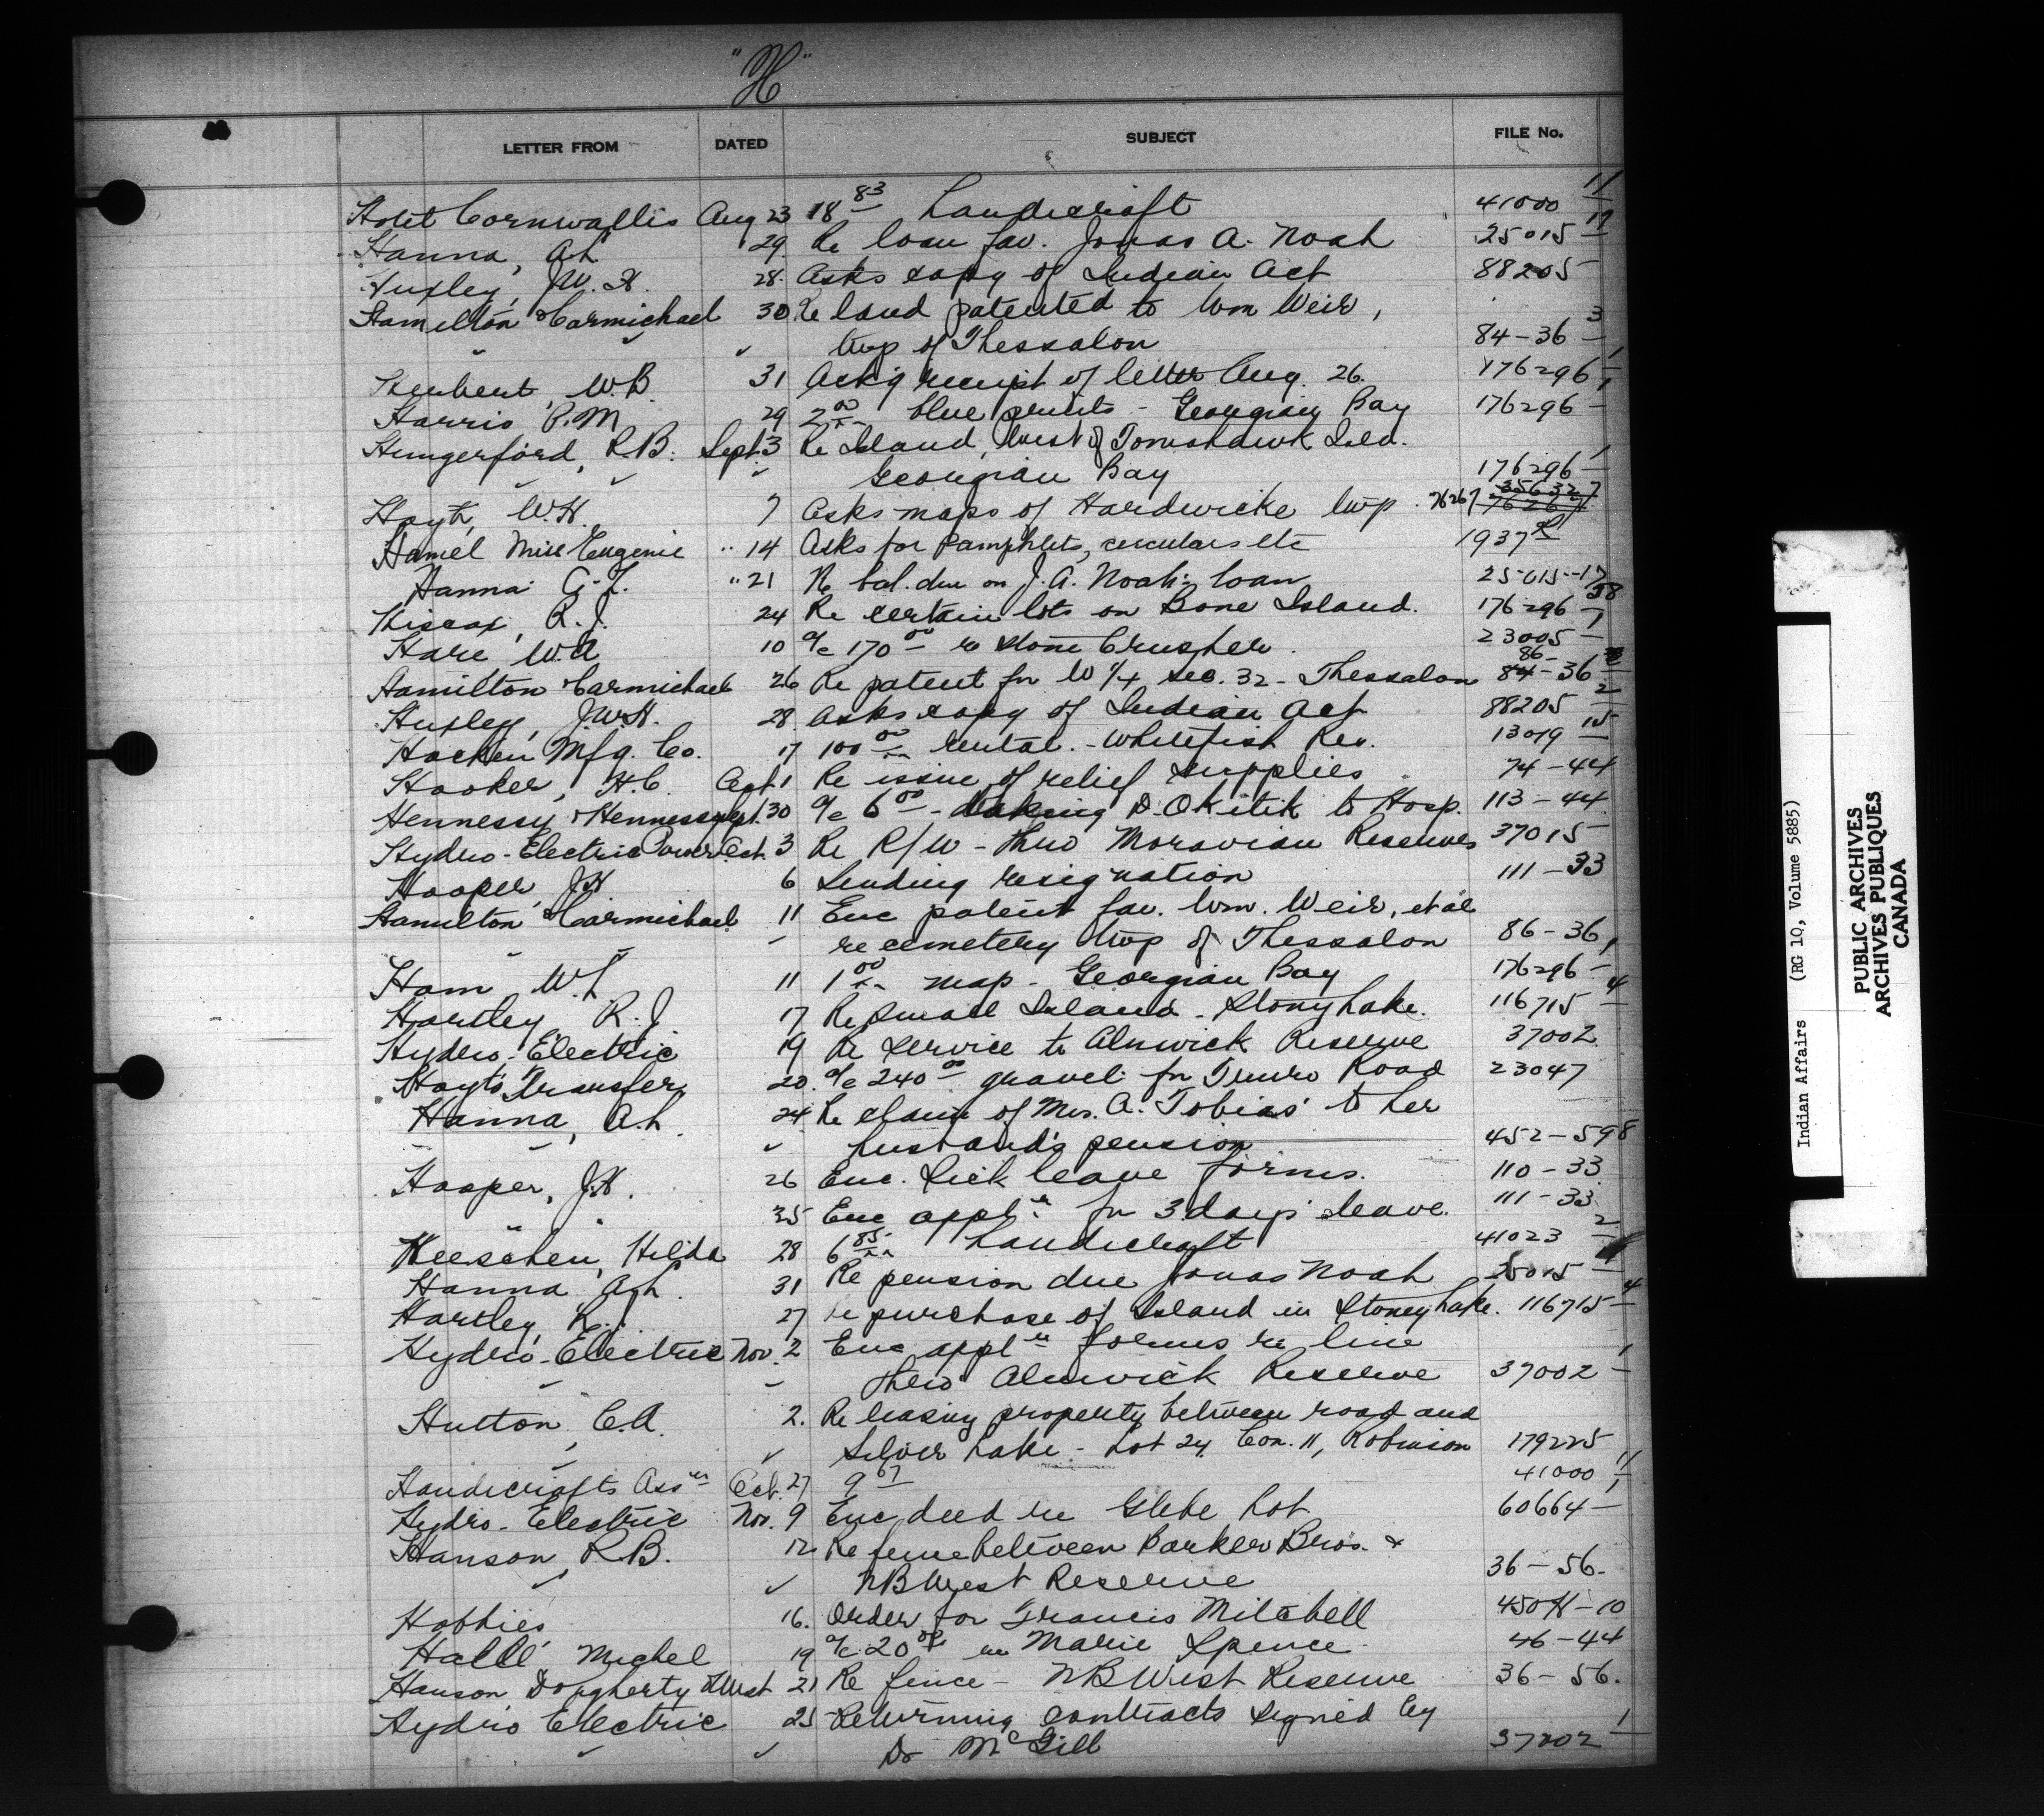 "H"
LETTER FROM DATED SUBJECT FILE No.
Hotel Cornwallis Aug 23 18 83 Handicraft 41000 11
Hanna, A.L. 29. Re loan fav. Jonas A. Noah 25015 17
Huxley, J.W.H. 28. Asks copy of Indian Act 88205
Hamilton & Carmichael 30 Re land patented to Wm Weir,
Twp of Thessalon 84-36 3
Herbert, W.B. 31 Ack'g receipt of letter Aug. 26. 176296 1
Harris P.M. 29 2 00 blue prints - Georgian Bay 176296 1
Hungerford, R.B. Sept. 3 Re Island, West of Tomahawk Isld.
Georgian Bay 176296 1
Hoyt, W.H. 7 Asks maps of Hardwicke Twp. 76267
Hamel Miss Eugenie " 14 Asks for Pamphlets, circulars etc 1937
Hanna A.L. " 21 Re bal. due on J.A. Noah's loan 25015-17
Hiscox, R.J. 24 Re certain lots on Bone Island. 176296 38
Hare W.A. 10 a/c 170 00 re stone Crusher. 23005 1
Hamilton & Carmichael 26 Re patent for W 1/4 Sec. 32 - Thessalon 86-36
Huxley, J.W.H. 28. Asks copy of Indian Act 88205 2
Hocken Mfg. Co. 17 100 00 rental. - Whitefish Res. 13019 15
Hooker, H.C. Sept 1 Re issue of relief supplies 74-44
Hennessy & Hennessy Sept. 30 a/c 6 00 - taking D. Okitik to Hosp. 113-44
Hydro-Electric Power Oct. 3 Re R/W - thro Moravian Reserves 37015
Hooper, J.H. 6 Sending resignation 111-33
Hamilton & Carmichael 11 Enc patent fav. Wm. Weir, et al
re cemetery Twp of Thessalon 86-36
Ham W.L. 11 1 00 map - Georgian Bay 176296 1
Hartley R.J. 17 Re small Island - Stony Lake. 116715 4
Hydro-Electric 19 Re service to Alnwick Reserve 37002
Hoyt's Transfer 20. a/c 240 00 gravel for Truro Road 23047
Hanna, A.L. 24 Re claim of Mrs. A. Tobias to her
husband's pension 452-598
Hooper, J.H. 26 Enc. Sick leave forms. 110-33
" " 25 Enc appl'n for 3 days leave. 111-33
Heeschen, Hilda 28 6 85 Handicraft 41023 2
Hanna A.L. 31 Re pension due Jonas Noah 25015
Hartley R.J. 27 re purchase of Island in Stoney Lake. 116715 4
Hydro-Electric Nov. 2 Enc appl'n forms re line
thro Alnwick Reserve 37002 1
Hutton, C.A. 2. Re leasing property between road and
Silver Lake - Lot 24, Con. 11, Robinson 179225
Handicrafts Ass'n Oct. 27 9 67 41000 11
Hydro-Electric Nov. 9 Enc deed re Glebe Lot 60664 1
Hanson, R.B. 12 Re fence between Barker Bros. &
NB West Reserve 36-56.
Hobbies 16. Order for Francis Mitchell 450H-10
Hallé Michel 19 a/c 20 00 re Marie Spence 46-44
Hanson Dougherty & West 21 Re fence - NB West Reserve 36-56.
Hydro Electric 25 Returning contracts signed by
Dr McGill 37002 1
Indian Affairs (RG 10, Volume 5885)
PUBLIC ARCHIVES
ARCHIVES PUBLIQUES
CANADA